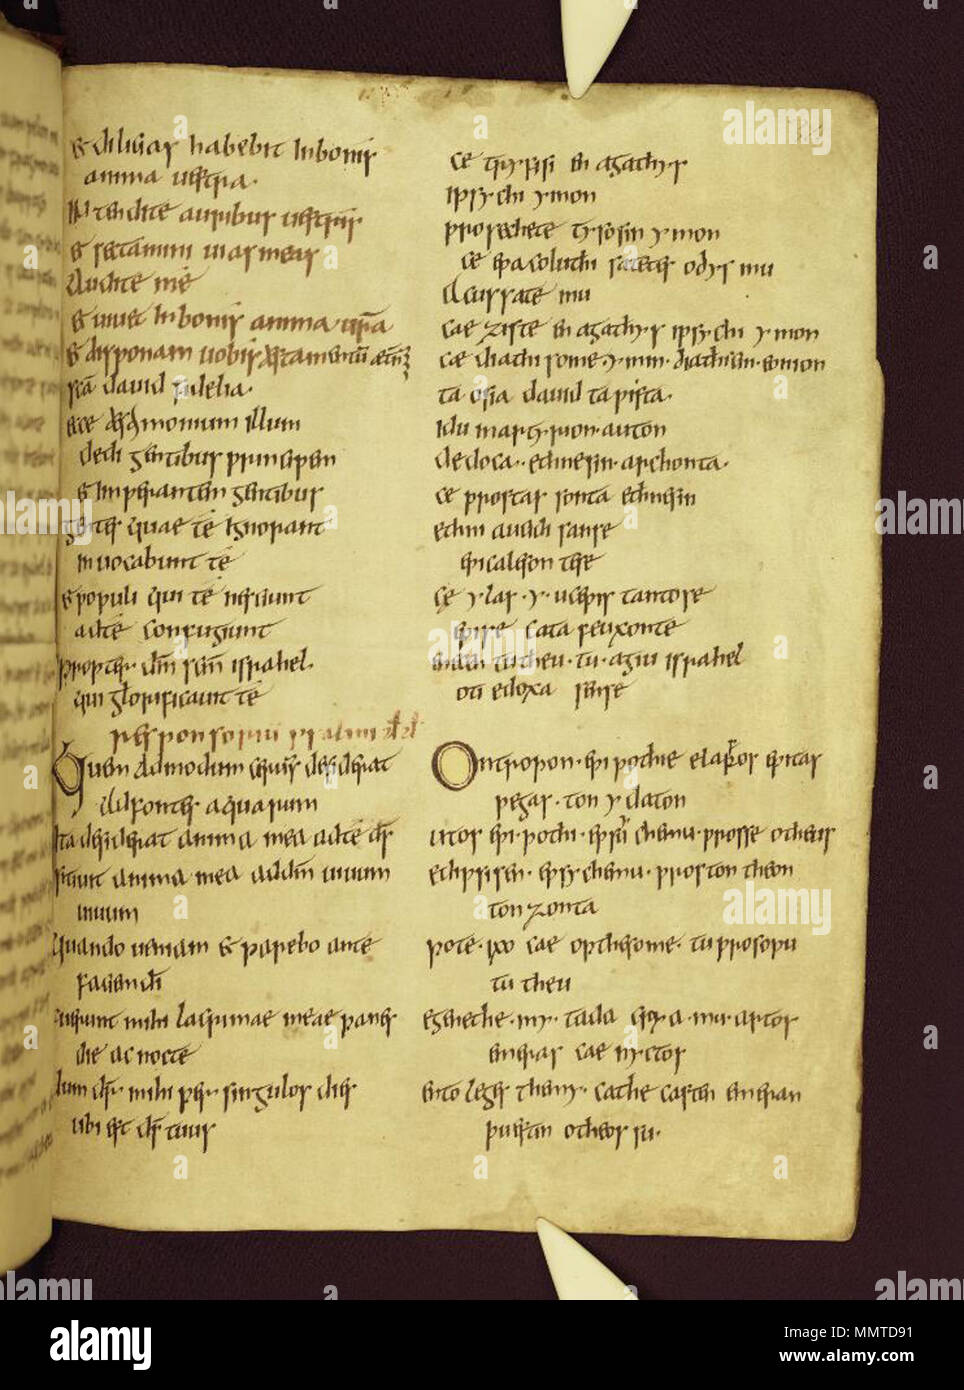 & dilicias habebit in bonis
anima uestra.
in tendite auribus uestris
& festamini uias meis
Audite me
& uiuet in bonis anima ura
& disponam uobis testamentu
sca david fidelia.
ecce testimonium illum
dedi gentibus principem
& imperantem gentibus
gentes quae te ignorant
inuocabunt te
& populi qui te nesciunt
ad te confugiunt
propter dm scm israhel.
qui glorificauit te
Quem admodum ceruus desiderat
ad fontes aquarum
Ita desiderat anima mea ad te ds
sitiuit anima mea ad dm uiuum
uiuum
quando ueniam & parebo ante
faciem di
fuerunt mihi lacrimae meae panes
die ac nocte
dum dr mihi per singulos dies
ubi est ds tuus
ce tryfisi en agathys
ipsy chi ymon
prosechete tysosin ymon
ce epacoluthi satetes odys mu
Acussate mu
cae ziste en agathys ipsy chi ymon
ce diathisome ymin diathicin eonion
ta osia david ta pista.
idu martyrion auton
dedoca ethnesin archonta.
ce prostas sonta ethnesin
ethni audi sanse
epicaleson the
ce ylas y ucepis tantose
epise cata feuxonte
enecen tu theu tu agiu israhel
oti edoxa sense
On tropon epi pothie elafos epitas
pegas ton ydaton
utos epi pothi epsi chemu prosse otheus
edipsisen epsychemu proston theon
ton zonta
pote ixo cae opthesome tu prosopu
tu theu
egenethe my ta da crya mu artos
emeras cae nyctos
ento leges theny cathe casten emeran
puestin otheos su.
alamy
Image ID: MMTD91
www.alamy.com